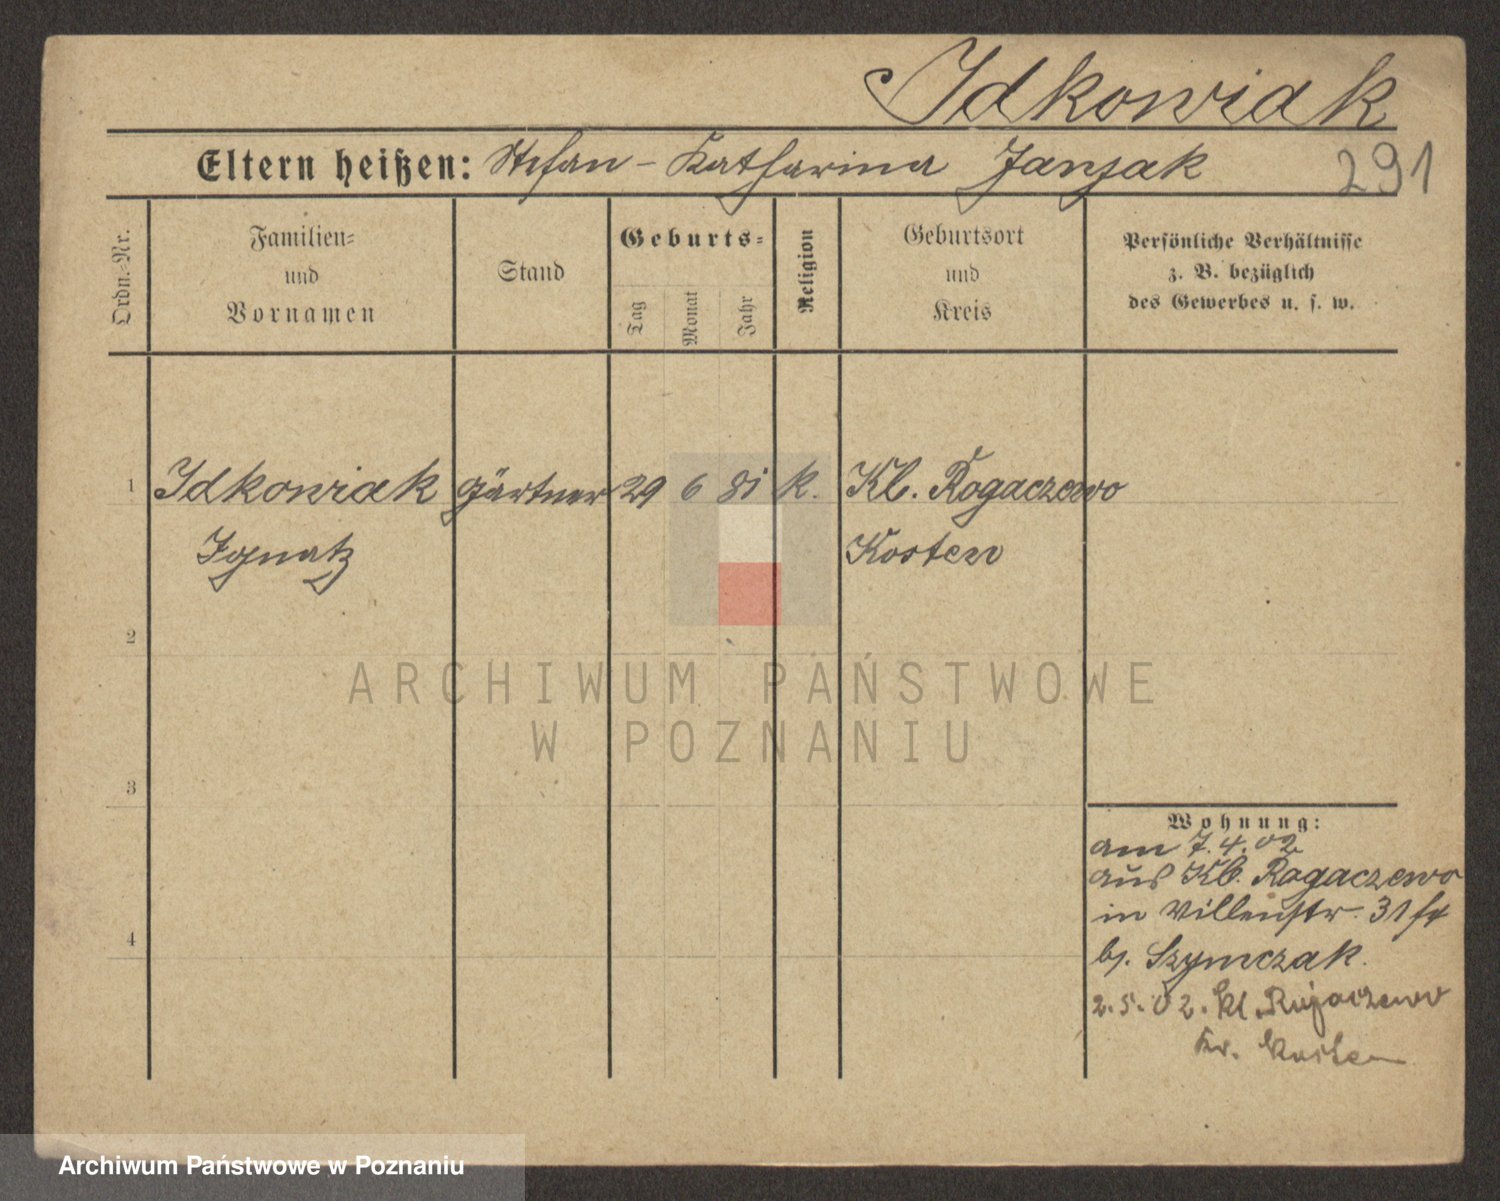 Idkowiak
Eltern heißen: Stefan - Katharina Janjak
291
Ordn.-Nr.
Familien- und Vornamen
Stand
Geburts-
Tag
Monat
Jahr
Religion
Geburtsort und Kreis
Persönliche Verhältnisse
z. B. bezüglich
des Gewerbes u. s. w.
1 Idkowiak Gärtner 29 6 81 k. Kl. Rogaczewo
Ignatz Kosten
2
ARCHIWUM PAŃSTWOWE
W POZNANIU
3
Wohnung:
am 7.4.02
aus Kl. Rogaczewo
in Villenstr. 31
4
bj. Szymczak.
2.5.02. Kl. Rogaczewo
Kr. Kosten
Archiwum Państwowe w Poznaniu